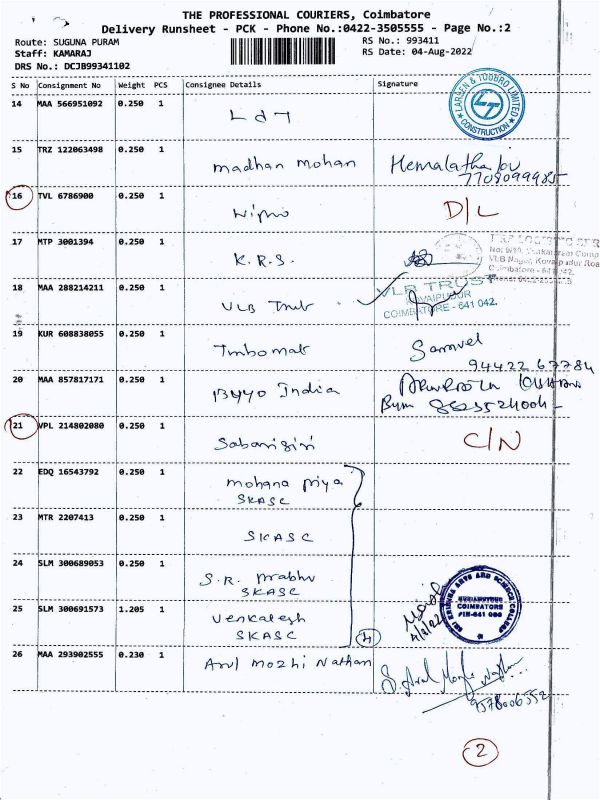 THE PROFESSIONAL COURIERS, Coimbatore
Delivery Runsheet - PCK - Phone No.:0422-3505555 - Page No.:2
Route: SUGUNA PURAM RS No.: 993411
Staff: KAMARAJ RS Date: 04-Aug-2022
DRS No.: DCJB99341102
S No Consignment No Weight PCS Consignee Details Signature
14 MAA 566951092 0.250 1 L d T
LARSEN & TOUBRO LIMITED
CONSTRUCTION
15 TRZ 122063498 0.250 1 madhan mohan Hemalatha
16 TVL 6786900 0.250 1 Wipro D/L
17 MTP 3001394 0.250 1 K.R.S.
18 MAA 288214211 0.250 1 VLB Trust
VLB TRUST
KOVAIPUDUR
COIMBATORE - 641 042.
19 KUR 608838055 0.250 1 Samvel
94422 67784
20 MAA 857817171 0.250 1 India
21 VPL 214802080 0.250 1 Sabarigiri C/N
22 EDQ 16543792 0.250 1 mohana Priya
SKASC
23 MTR 2207413 0.250 1 SKASC
24 SLM 300689053 0.250 1 S.R. Prabhu
SKASC
25 SLM 300691573 1.205 1 Venkatesh
SKASC
4
SRI KRISHNA ARTS AND SCIENCE COLLEGE
COIMBATORE
26 MAA 293902555 0.230 1 Arul mozhi Nathan
9578006552
2